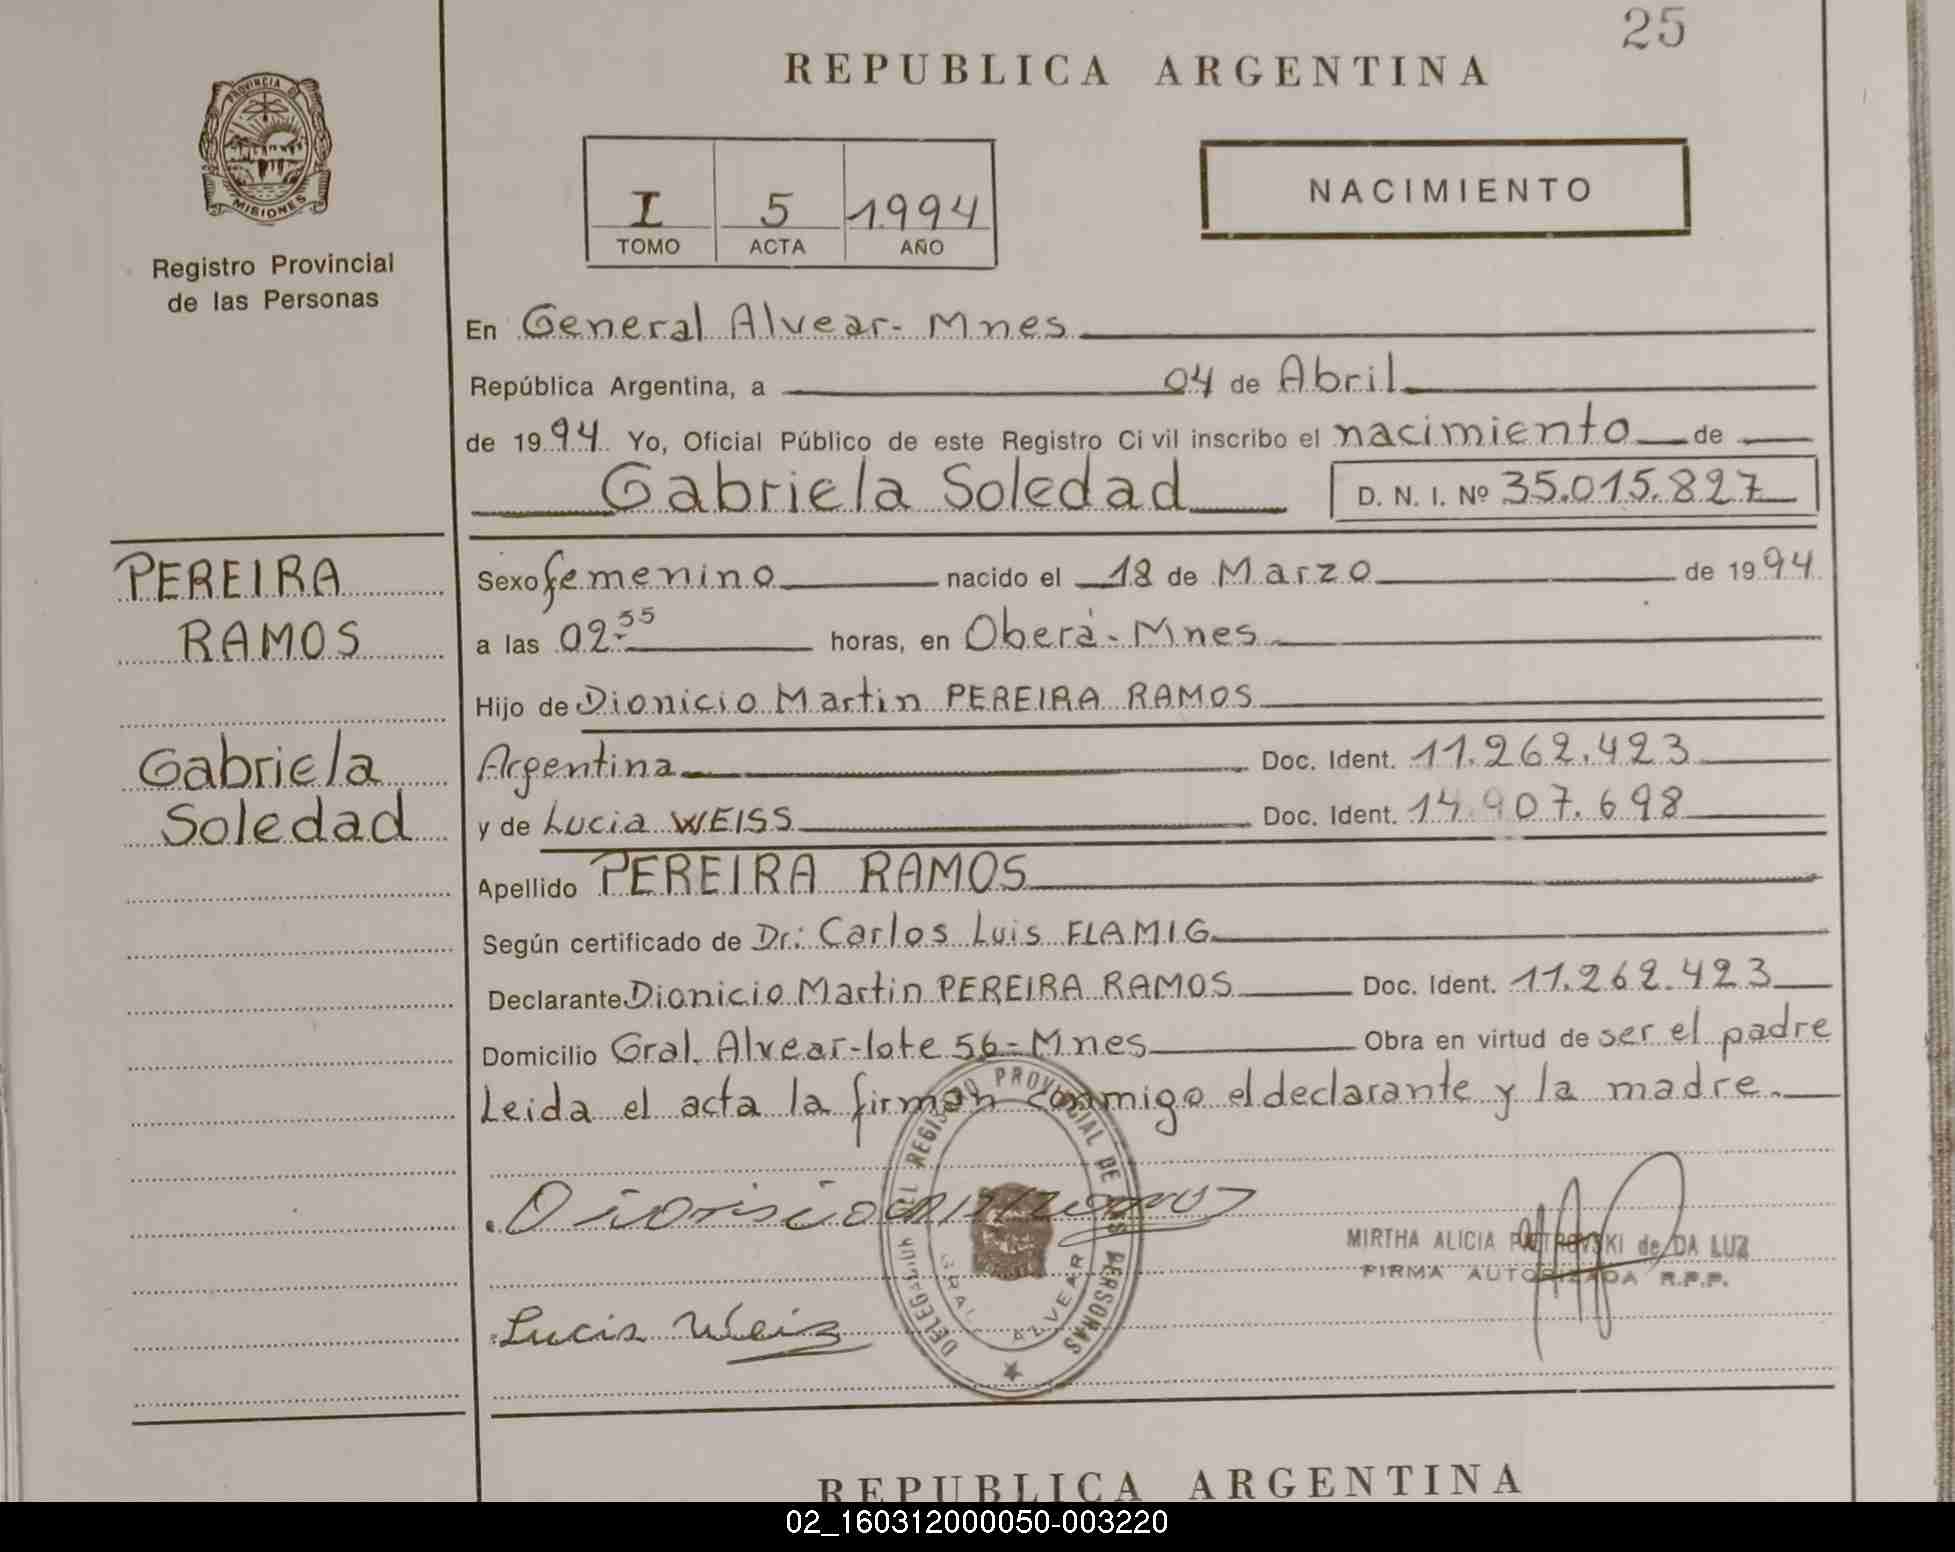 25
REPUBLICA ARGENTINA
PROVINCIA DE
MISIONES
Registro Provincial
de las Personas
I 5 1994
TOMO ACTA AÑO
NACIMIENTO
En General Alvear-Mnes
República Argentina, a 04 de Abril
de 1994 Yo, Oficial Público de este Registro Civil inscribo el nacimiento de
Gabriela Soledad D. N. I. Nº 35.015.827
PEREIRA
RAMOS
Gabriela
Soledad
Sexo femenino nacido el 18 de Marzo de 1994
a las 02:55 horas, en Oberá-Mnes
Hijo de Dionicio Martin PEREIRA RAMOS
Argentina Doc. Ident. 11.262.423
y de Lucia WEISS Doc. Ident. 14.907.698
Apellido PEREIRA RAMOS
Según certificado de Dr: Carlos Luis FLAMIG
Declarante Dionicio Martin PEREIRA RAMOS Doc. Ident. 11.262.423
Domicilio Gral. Alvear-lote 56-Mnes Obra en virtud de ser el padre
Leida el acta la firman conmigo el declarante y la madre.
REGISTRO PROVINCIAL DE LAS PERSONAS
GRAL ALVEAR
MIRTHA ALICIA PIETROVSKI de DA LUZ
FIRMA AUTORIZADA R.P.P.
Lucia Weiz
REPUBLICA ARGENTINA
02_160312000050-003220